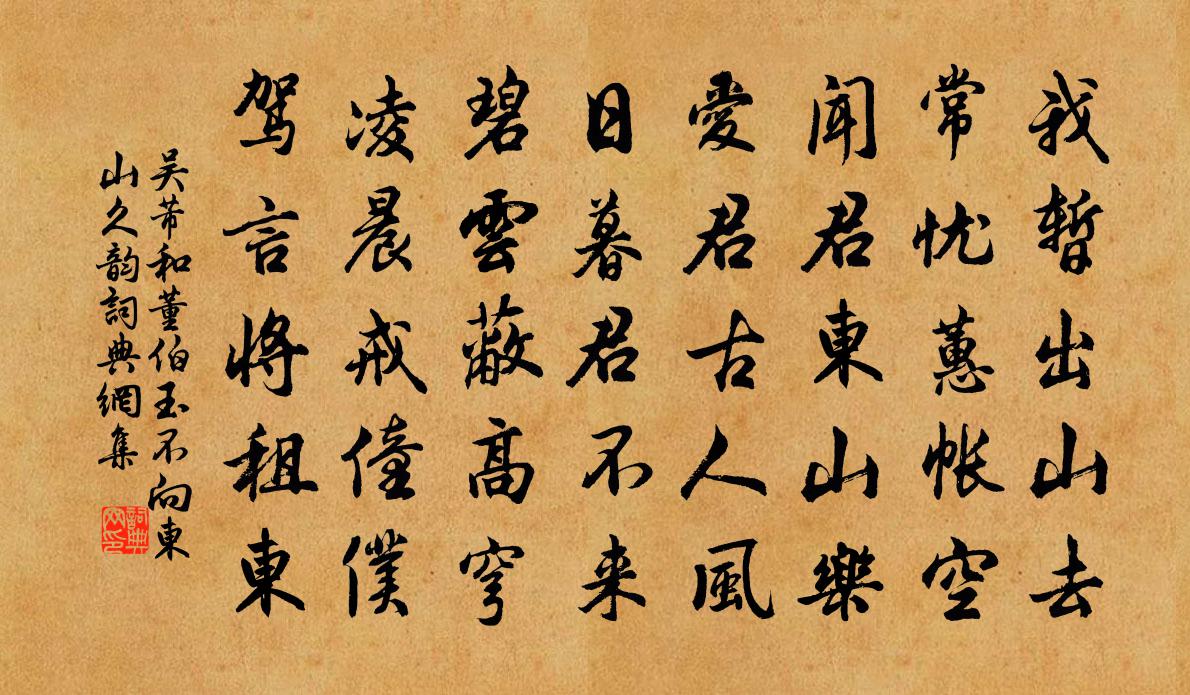 我暫出山去
常忧蕙帐空
聞君東山樂
愛君古人風
日暮君不来
碧雲蔽高穹
凌晨戒僮僕
驾言将租東
吴芾和董伯玉不向東
山久韵詞典網集
詞典
网印